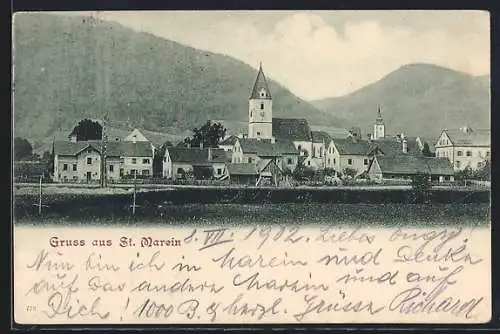 Gruss aus St. Marein 8. VII. 1902. Liebes
Nun bin ich in Marein und Denke
auf Das andere Marein und auf
Dich! 1000 B. & herzl. Grüsse Richard